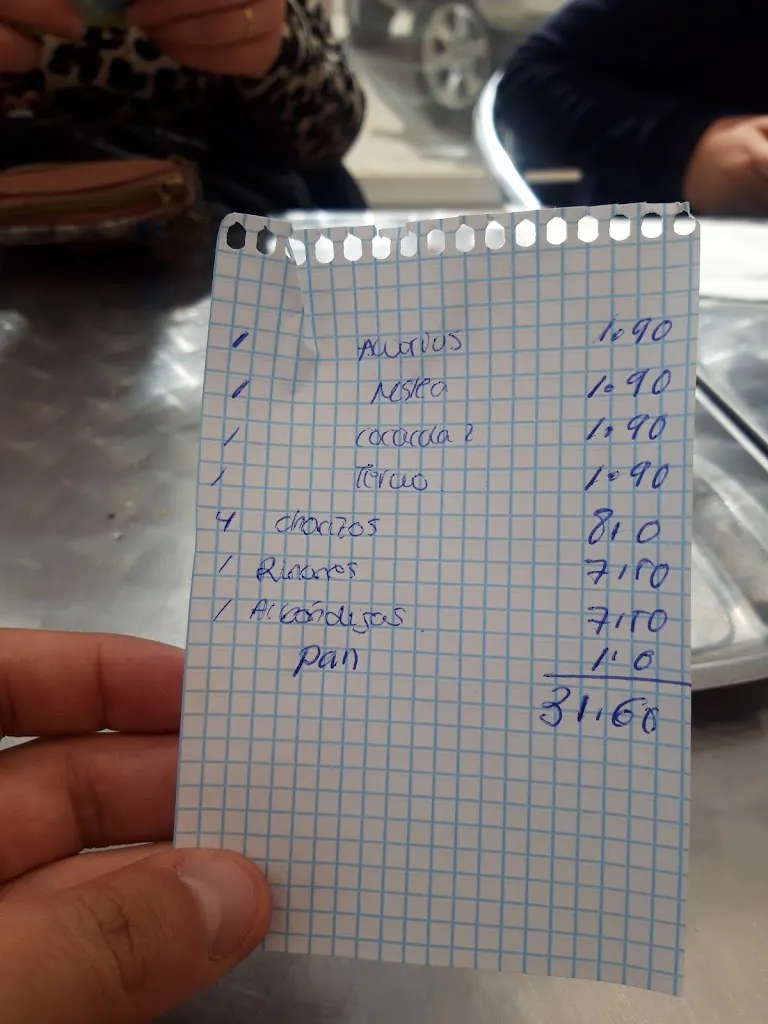 1 Acuarius 1.90
1 nestea 1.90
1 cocacola 2 1.90
1 Tercio 1.90
4 chorizos 8,0
1 Riñones 7,50
1 Albóndigas 7,50
pan 1,0
31,60